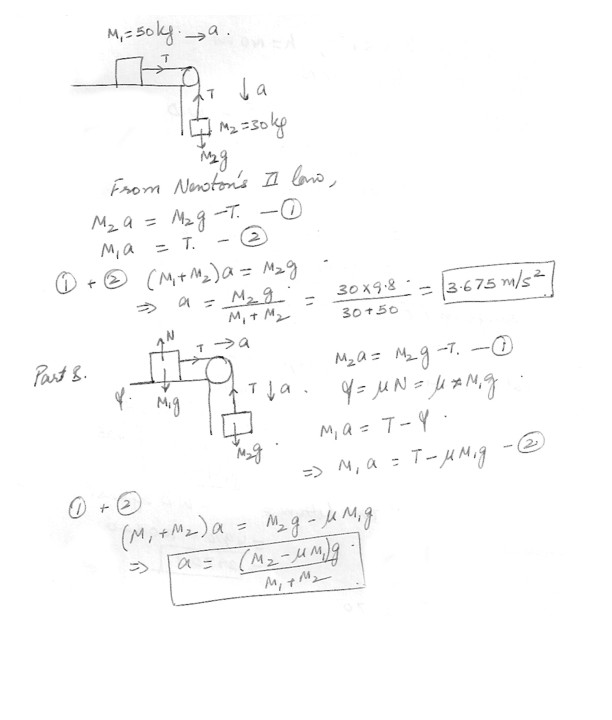 M₁ = 50kg. → a.
T
T ↓ a
M₂ = 30kg
M₂g
From Newton's II law,
M₂a = M₂g - T. - ①
M₁a = T. - ②
① + ② (M₁ + M₂)a = M₂g
⇒ a = M₂g / (M₁ + M₂) = 30 × 9.8 / (30 + 50) = 3.675 m/s²
Part B.
N T → a
M₁g T ↓ a.
M₂g.
M₂a = M₂g - T. - ①
φ = μN = μ * M₁g.
M₁a = T - φ.
⇒ M₁a = T - μM₁g - ②
φ.
① + ②
(M₁ + M₂)a = M₂g - μM₁g
⇒ a = (M₂ - μM₁)g / (M₁ + M₂)